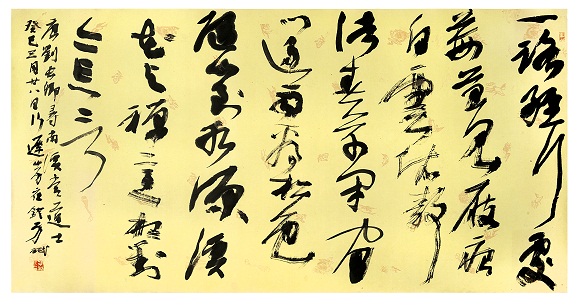 一路經行處
莓苔見屐痕
白雲依靜
渚春草閉閒
門過雨看松色
隨山到水源溪
花與禪意相對
亦忘言
唐劉長卿尋南溪常道士
癸巳三月廿八日